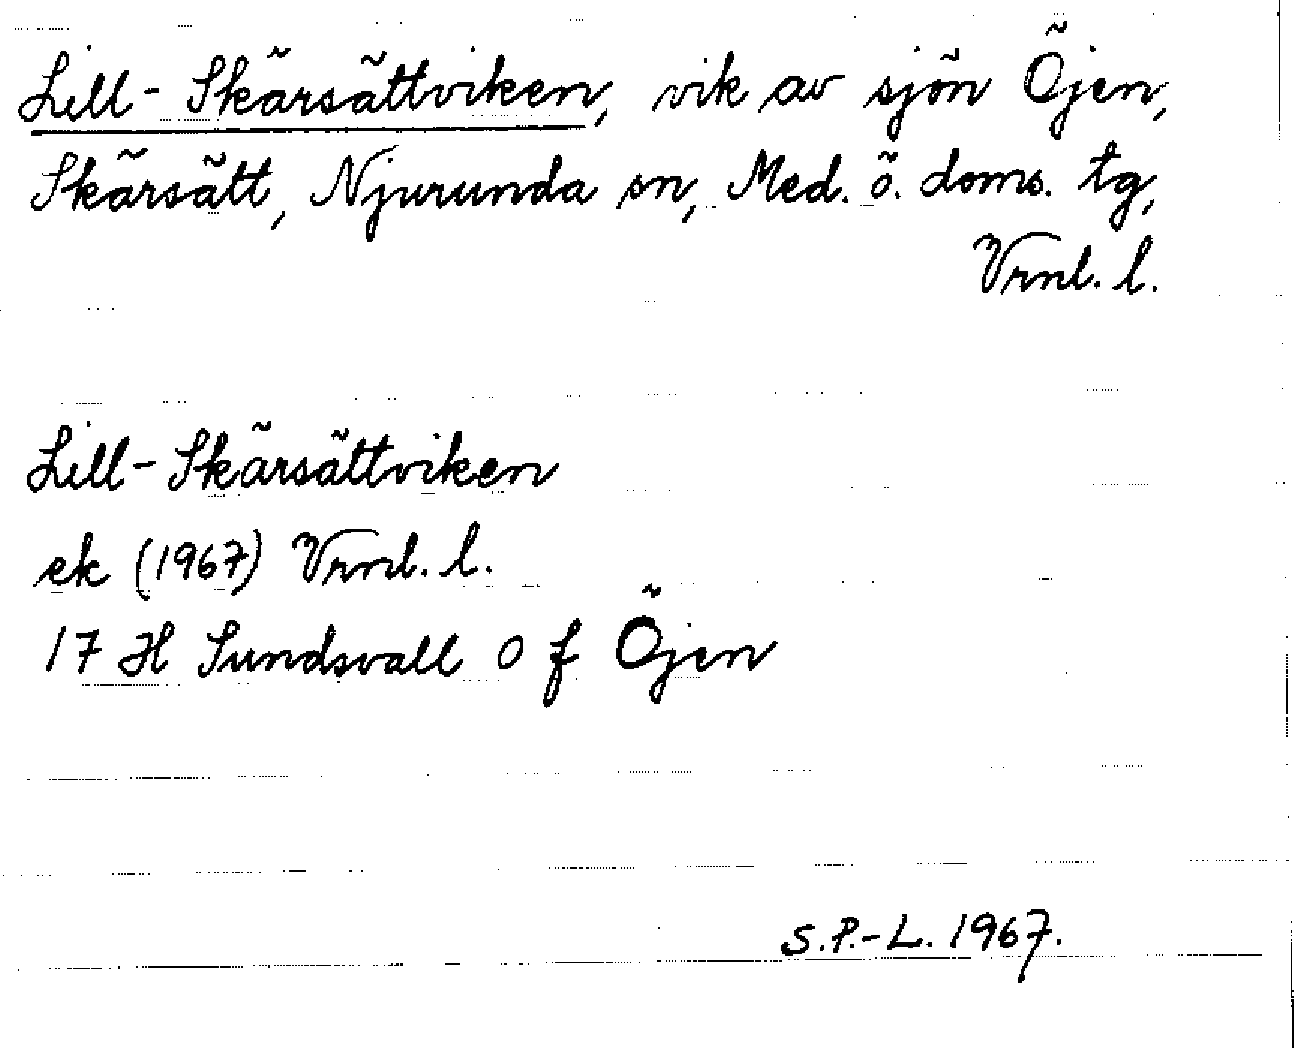 Lill-Skärsättviken, vik av sjön Öjen,
Skärsätt, Njurunda sn, Med. ö. doms. tg,
Vrnl. l.
Lill-Skärsättviken
ek (1967) Vrnl. l.
17 H Sundsvall O f Öjen
S.P.-L. 1967.